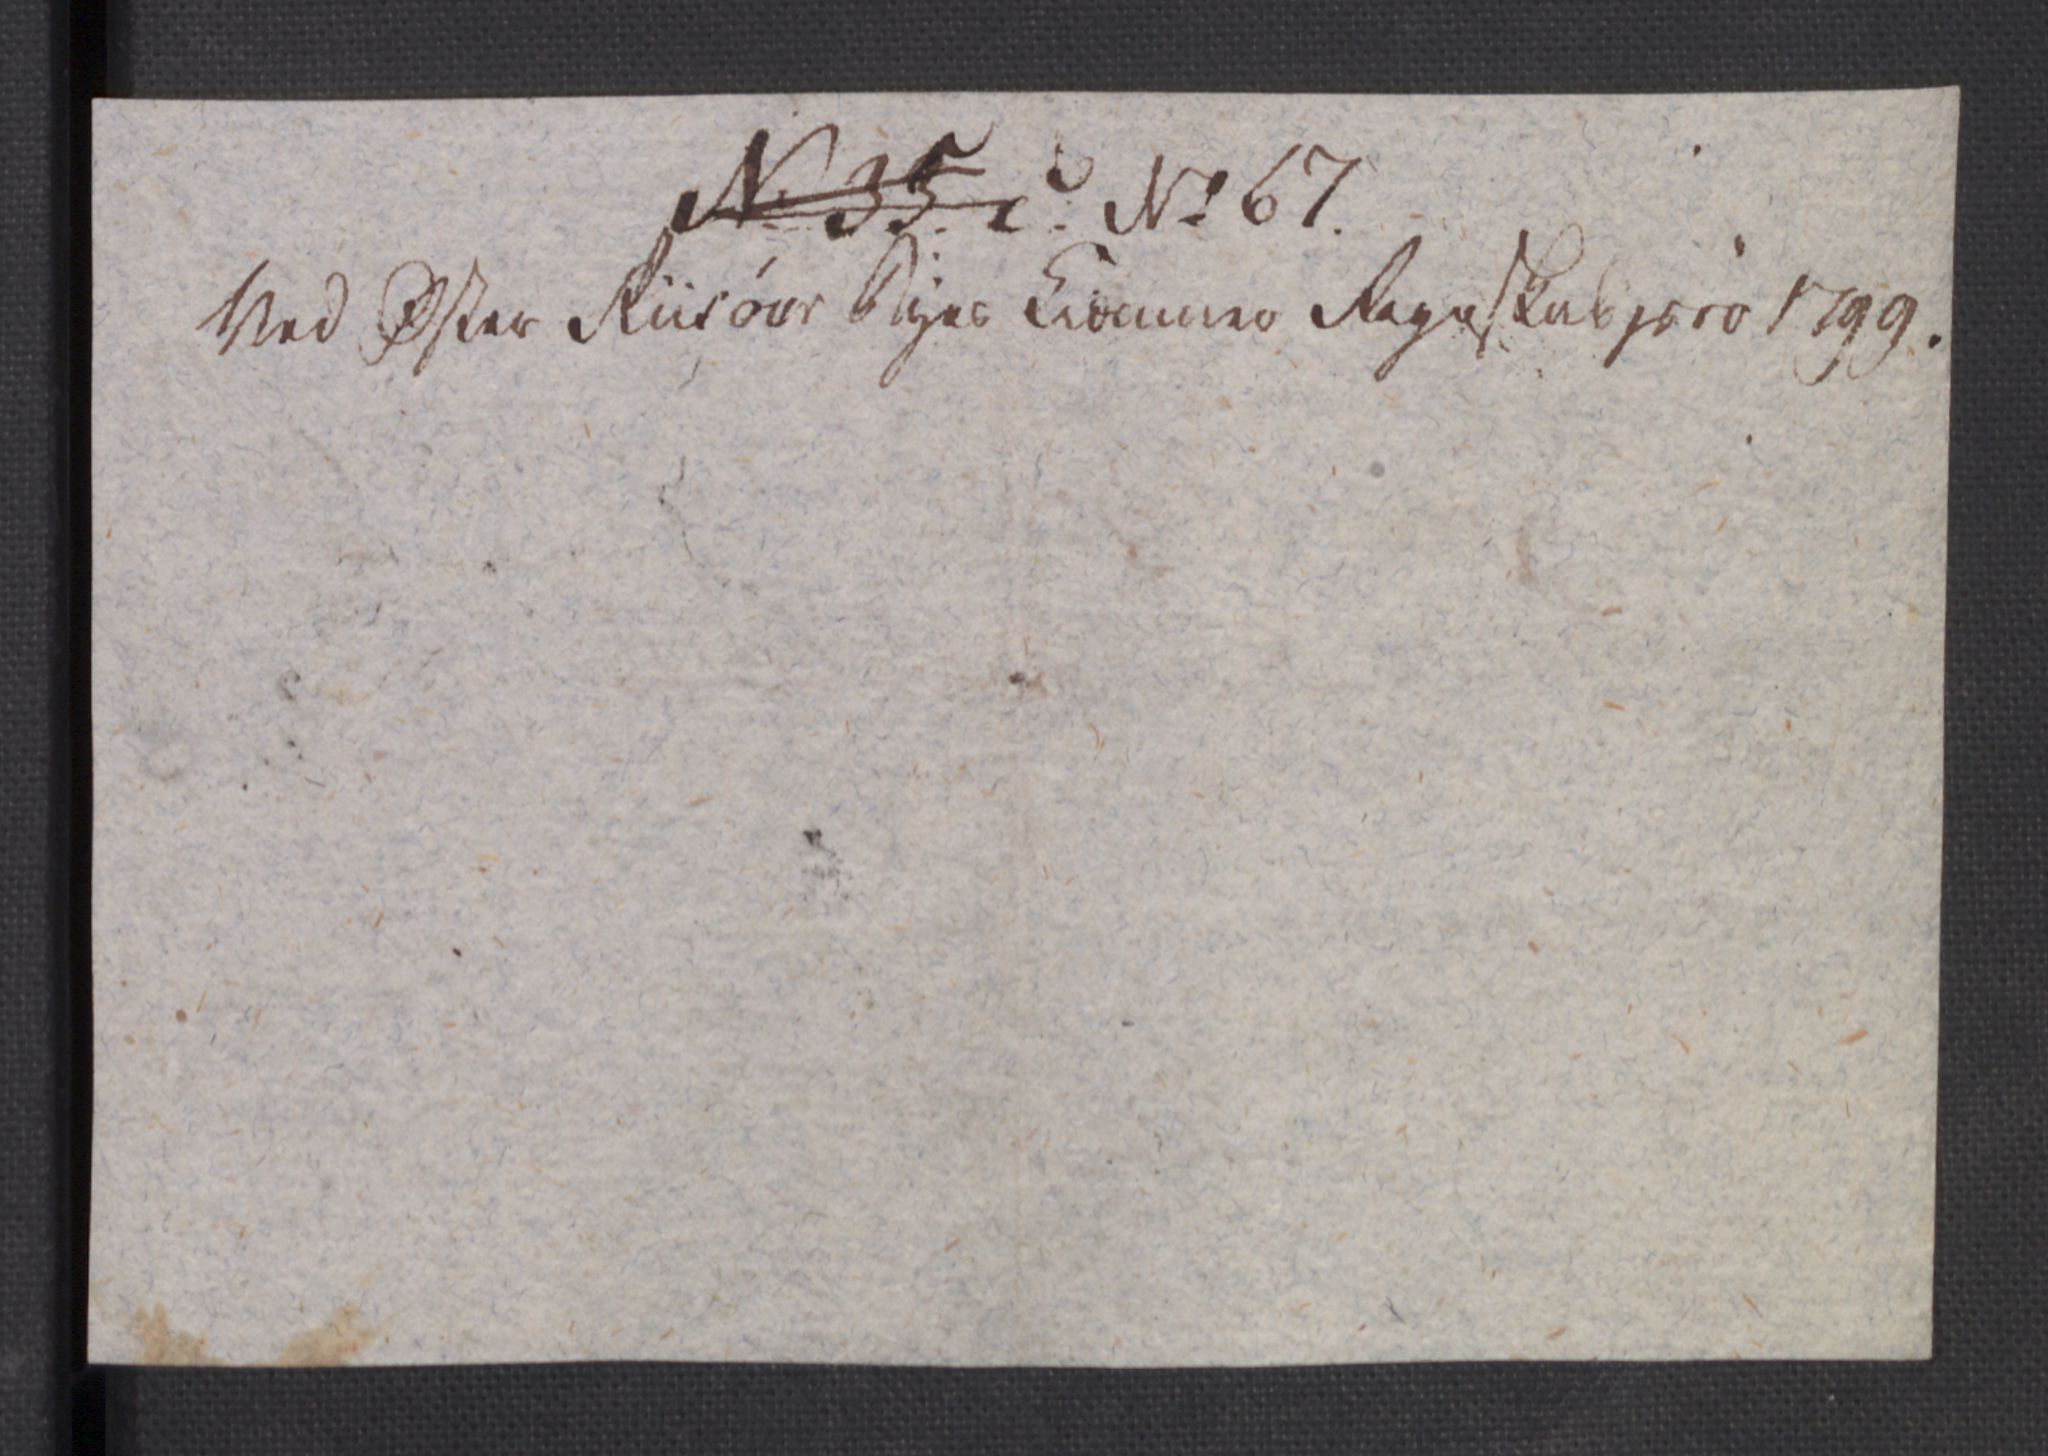 No 35 c. No 67.
Ved Øster Riisöer Byes Kiæmner Regnskab pro 1799.